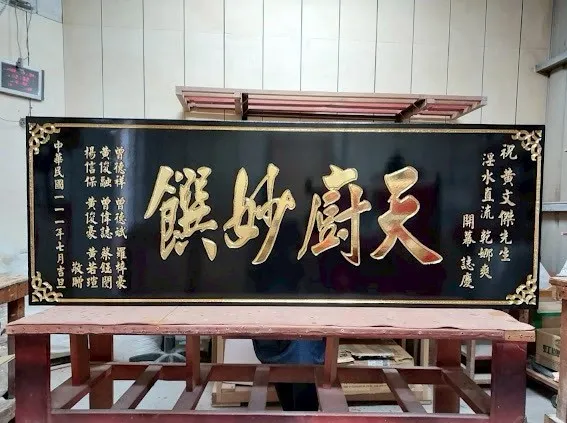 祝 黃文傑先生
溼水直流 乾娜爽
開幕 誌慶
天廚妙饌
曾德祥 曾德斌 羅梓豪
黃俊融 曾偉誌 蔡鈺閔
楊信保 黃俊豪 黃若瑄
敬贈
中華民國一一一年七月吉旦